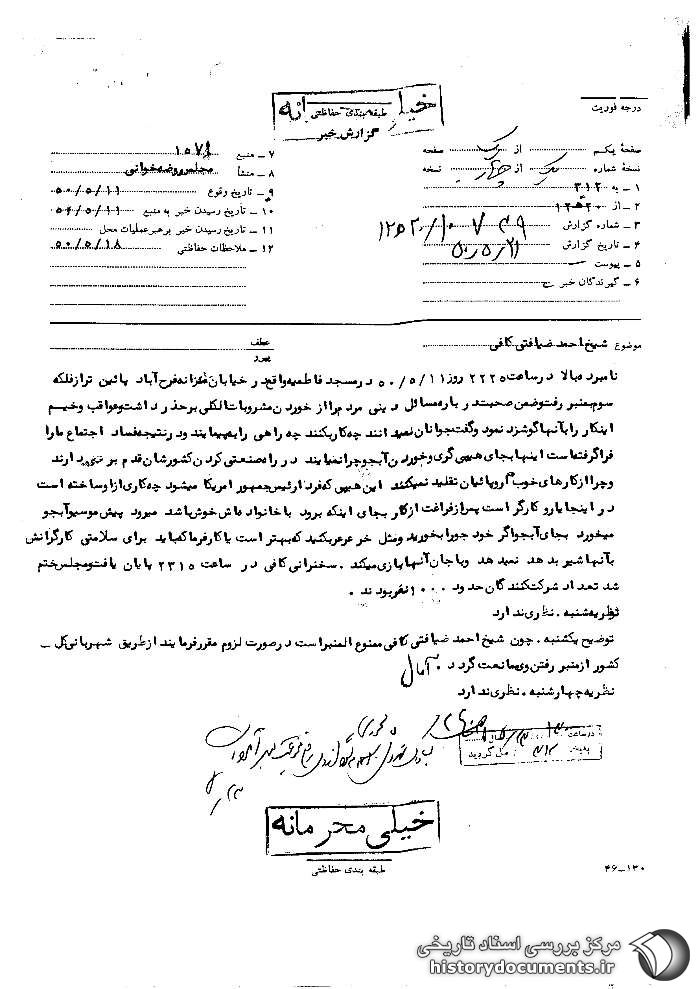 درجه فوریت
خیلی محرمانه
طبقه بندی حفاظتی
گزارش خبر
صفحهٔ یکم از یک صفحه
نسخهٔ شماره یک از چهار نسخه
۱ – به ۳۱۲
۲ – از ۲۰ ه ۱۲
۳ – شماره گزارش
۴ – تاریخ گزارش ۵۰/۵/۲۱
۵ – پیوست
۶ – گیرندگان خبر
۷ – منبع
۸ – منشأ مجلس روضه خوانی
۹ – تاریخ وقوع ۵۰/۵/۱۱
۱۰ – تاریخ رسیدن خبر به منبع ۵۰/۵/۱۱
۱۱ – تاریخ رسیدن خبر برهبر عملیات محل
۱۲ – ملاحظات حفاظتی ۵۰/۵/۱۸
موضوع شیخ احمد ضیافتی کافی
عطف
پیرو
نامبرده بالا در ساعت ۲۲۲۵ روز ۵۰/۵/۱۱ در مسجد فاطمیه واقع در خیابان فرح آباد پائین تر از فلکه
سوم بمنبر رفت و ضمن صحبت در باره مسائل دینی مردم را از خوردن مشروبات الکلی برحذر داشت و عواقب وخیم
اینکار را بآنها گوشزد نمود و گفت جوانان نمیدانند چه کار بکنند چه راهی را به پیمایند و در نتیجه فساد اجتماع ما را
فرا گرفته است اینها بجای هیپی گری و خوردن آبجو چرا نمیایند در راه صنعتی کردن کشورشان قدم بر نمیدارند
و چرا از کارهای خوب اروپائیان تقلید نمیکنند این هیپی که فردا رئیس جمهور امریکا میشود چه کاری از او ساخته است
در اینجا یارو کارگر است پس از فراغت از کار بجای اینکه برود با خانواده اش خوش باشد میرود پیش موسیو آبجو
میخورد بجای آبجو اگر خود جو را بخورید و مثل خر عرعر بکنید که بهتر است یا کارفرما که باید برای سلامتی کارگرانش
بآنها شیر بدهد نمیدهد و با جان آنها بازی میکند . سخنرانی کافی در ساعت ۲۳۱۵ پایان یافت و مجلس ختم
شد تعداد شرکت کنندگان حدود ۱۰۰۰ نفر بودند .
نظریه شنبه . نظری ندارد
توضیح یکشنبه . چون شیخ احمد ضیافتی کافی ممنوع المنبر است در صورت لزوم مقرر فرمایند از طریق شهربانی کل –
کشور از منبر رفتن وی ممانعت گردد . آمال
نظریه چهارشنبه . نظری ندارد
در ساعت
خیلی محرمانه
طبقه بندی حفاظتی
۴۶–۱۳۰
مرکز بررسی اسناد تاریخی
historydocuments.ir